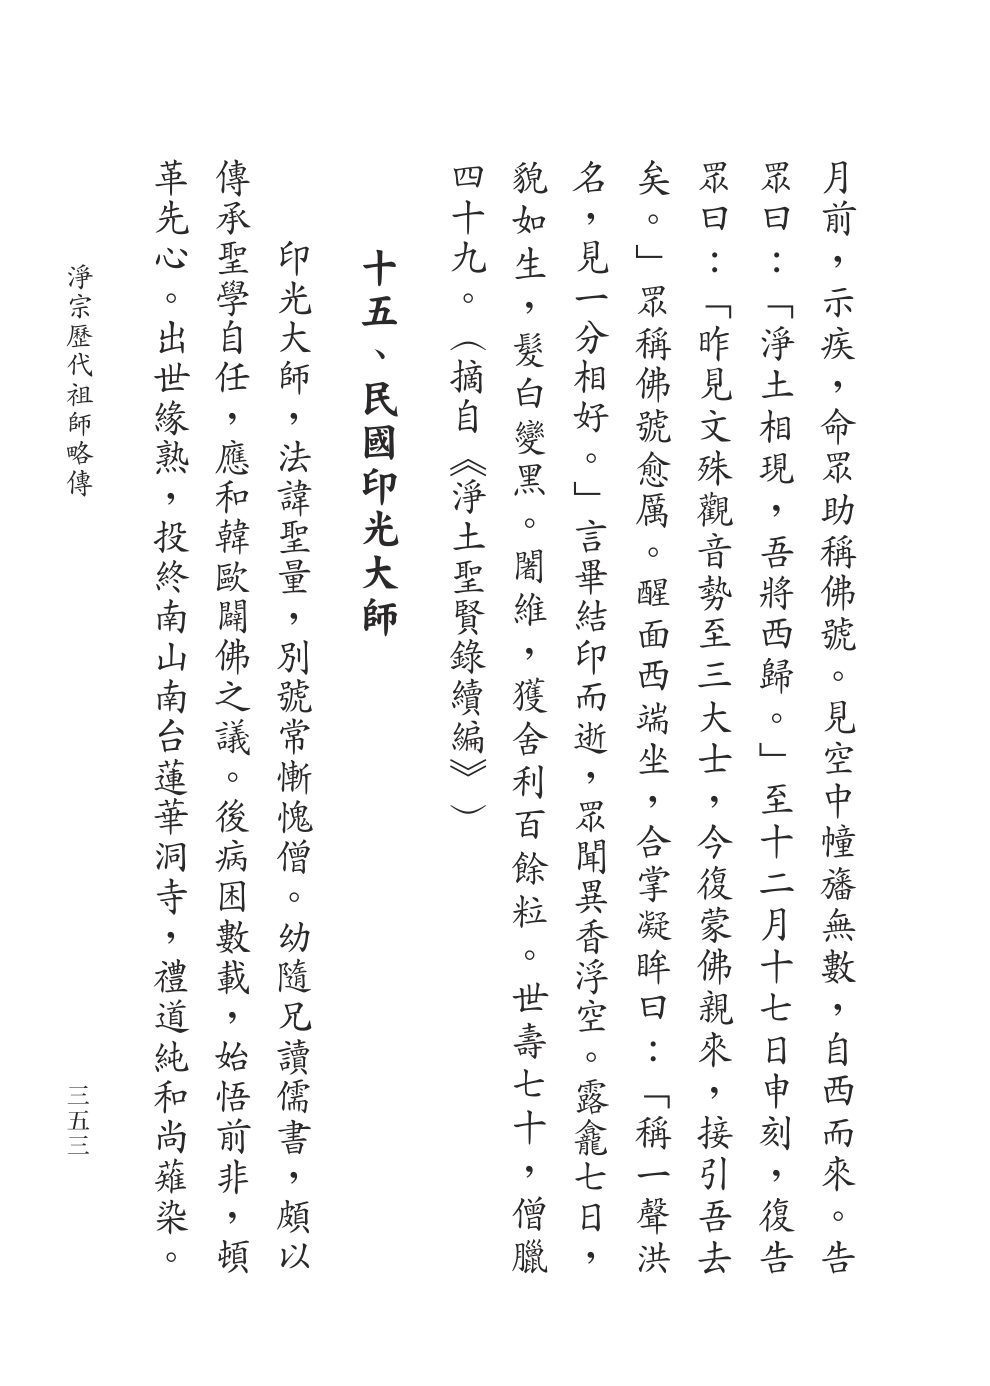 月前，示疾，命眾助稱佛號。見空中幢旛無數，自西而來。告
眾曰：「淨土相現，吾將西歸。」至十二月十七日申刻，復告
眾曰：「昨見文殊觀音勢至三大士，今復蒙佛親來，接引吾去
矣。」眾稱佛號愈厲。醒面西端坐，合掌凝眸曰：「稱一聲洪
名，見一分相好。」言畢結印而逝，眾聞異香浮空。露龕七日，
貌如生，髮白變黑。闍維，獲舍利百餘粒。世壽七十，僧臘
四十九。（摘自《淨土聖賢錄續編》）
十五、民國印光大師
印光大師，法諱聖量，別號常慚愧僧。幼隨兄讀儒書，頗以
傳承聖學自任，應和韓歐闢佛之議。後病困數載，始悟前非，頓
革先心。出世緣熟，投終南山南台蓮華洞寺，禮道純和尚薙染。
淨宗歷代祖師略傳
三五三